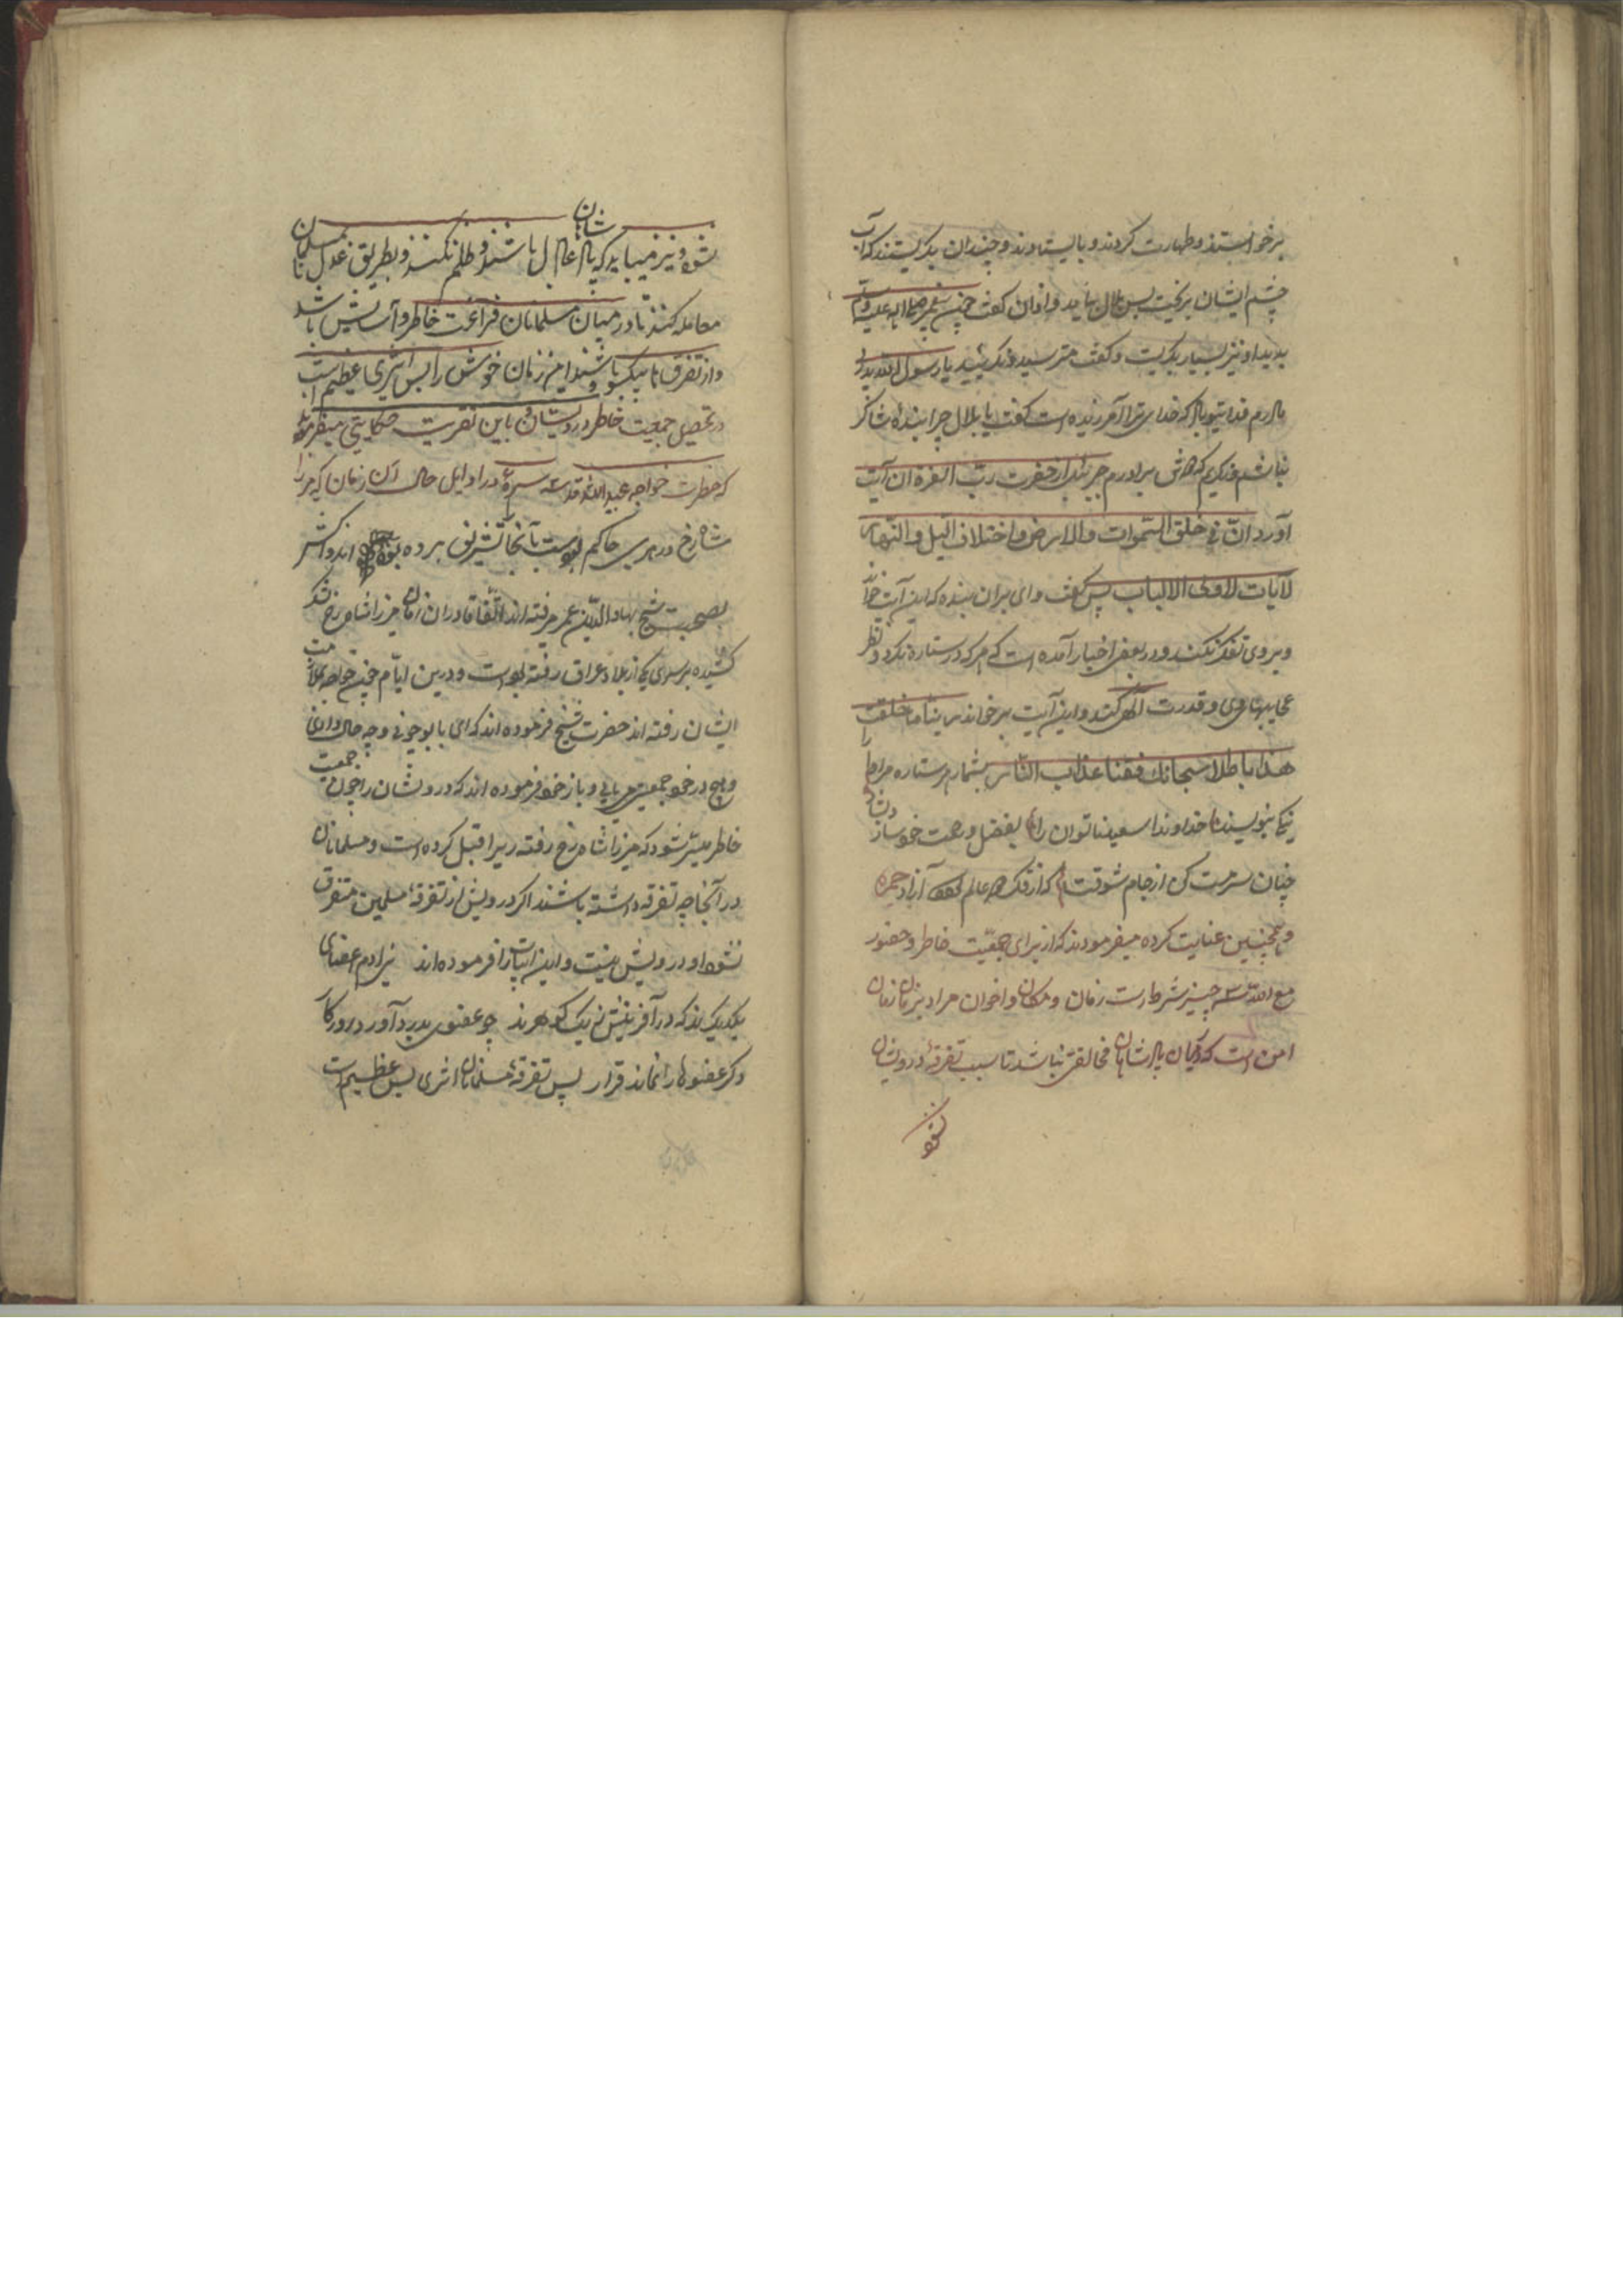 برخواستند و طهارت کردند و بایستادند و چندان بکریستند که آب
چشم ایشان بریخت پس بلال بیامد و اذان کفت چون پیغمبر صلی الله علیه وسلم
بدید او نیز بسیار بکریست و کفت مترسید و نکریید یا رسول الله پدر
مادرم فدای تو باد که خدای ترا آمرزیده است کفت یا بلال چرا بنده شاکر
نباشم برادرم جبرئیل از حضرت رب العزة این آیت
آورد ان فی خلق السموات والارض واختلاف الیل والنهار
لایات لاولی الالباب پس کفت وای بران بنده که این آیت خواند
و بروی تفکر نکند و در بعض اخبار آمده است که هر که در ستاره نکرد و نظر
عجایبهای وی و قدرت الهی کند و این آیت برخواند ربنا ما خلقت
هذا باطلا سبحانک فقنا عذاب النار بشمار هر ستاره مر او را
نیکی بنویسند خداوندا سعید ناتوان را بفضل و رحمت خود ساز
چنان سرمست کن از جام شوقت که از فکر همه عالم آزاد
و همچنین عنایت کرده میفرمودند که از برای جمعیت خاطر و حضور
مع الله سه چیز شرطست زمان و مکان و اخوان مراد بزمان زمان
امن است که میان پادشاهان مخالفتی نباشد تا سبب تفرقه درویشان
نشود
نشود و نیز میباید که پادشاهان عادل باشند و ظلم نکنند و بطریق عدل با مسلمانان
معامله کنند تا در میان مسلمانان فراغت خاطر و آسایش باشد
و از تفرق تا یکسو باشند و امن زمان خوش را بس اثری عظیم است
در تحصیل جمعیت خاطر درویشان و باین تقریب حکایتی میفرمودند
که حضرت خواجه عبید الله قدس سره در اوایل حال آن زمان که میرزا
شاهرخ در هری حاکم بوده است بآنجا تشریف برده بوده اند و اکثر
بصحبت شیخ بهاء الدین عمر میرفته اند اتفاقا دران زمان میرزا شاهرخ لشکر
کشیده بر سر یکی از بلاد عراق رفته بوده است و درین ایام حضرت خواجه بملازمت
ایشان رفته اند حضرت شیخ فرموده اند که ای بابو چونی و چه حال داری
و هیچ در خود جمعیتی می یابی و باز خود فرموده اند که درویشان را چون جمعیت
خاطر میسر شود که میرزا شاهرخ رفته زیرا قبل کرده است و مسلمانان
در آنجا چه تفرقه داشته باشند اکر درویش از تفرقه مسلمین متفرق
نشود او درویش نیست و این ابیات را فرموده اند بنی آدم اعضای
یکدیکرند که در آفرینش ز یک کوهرند چو عضوی بدرد آورد روزکار
دکر عضوها را نماند قرار پس تفرقه مسلمانان اثری بس عظیم است